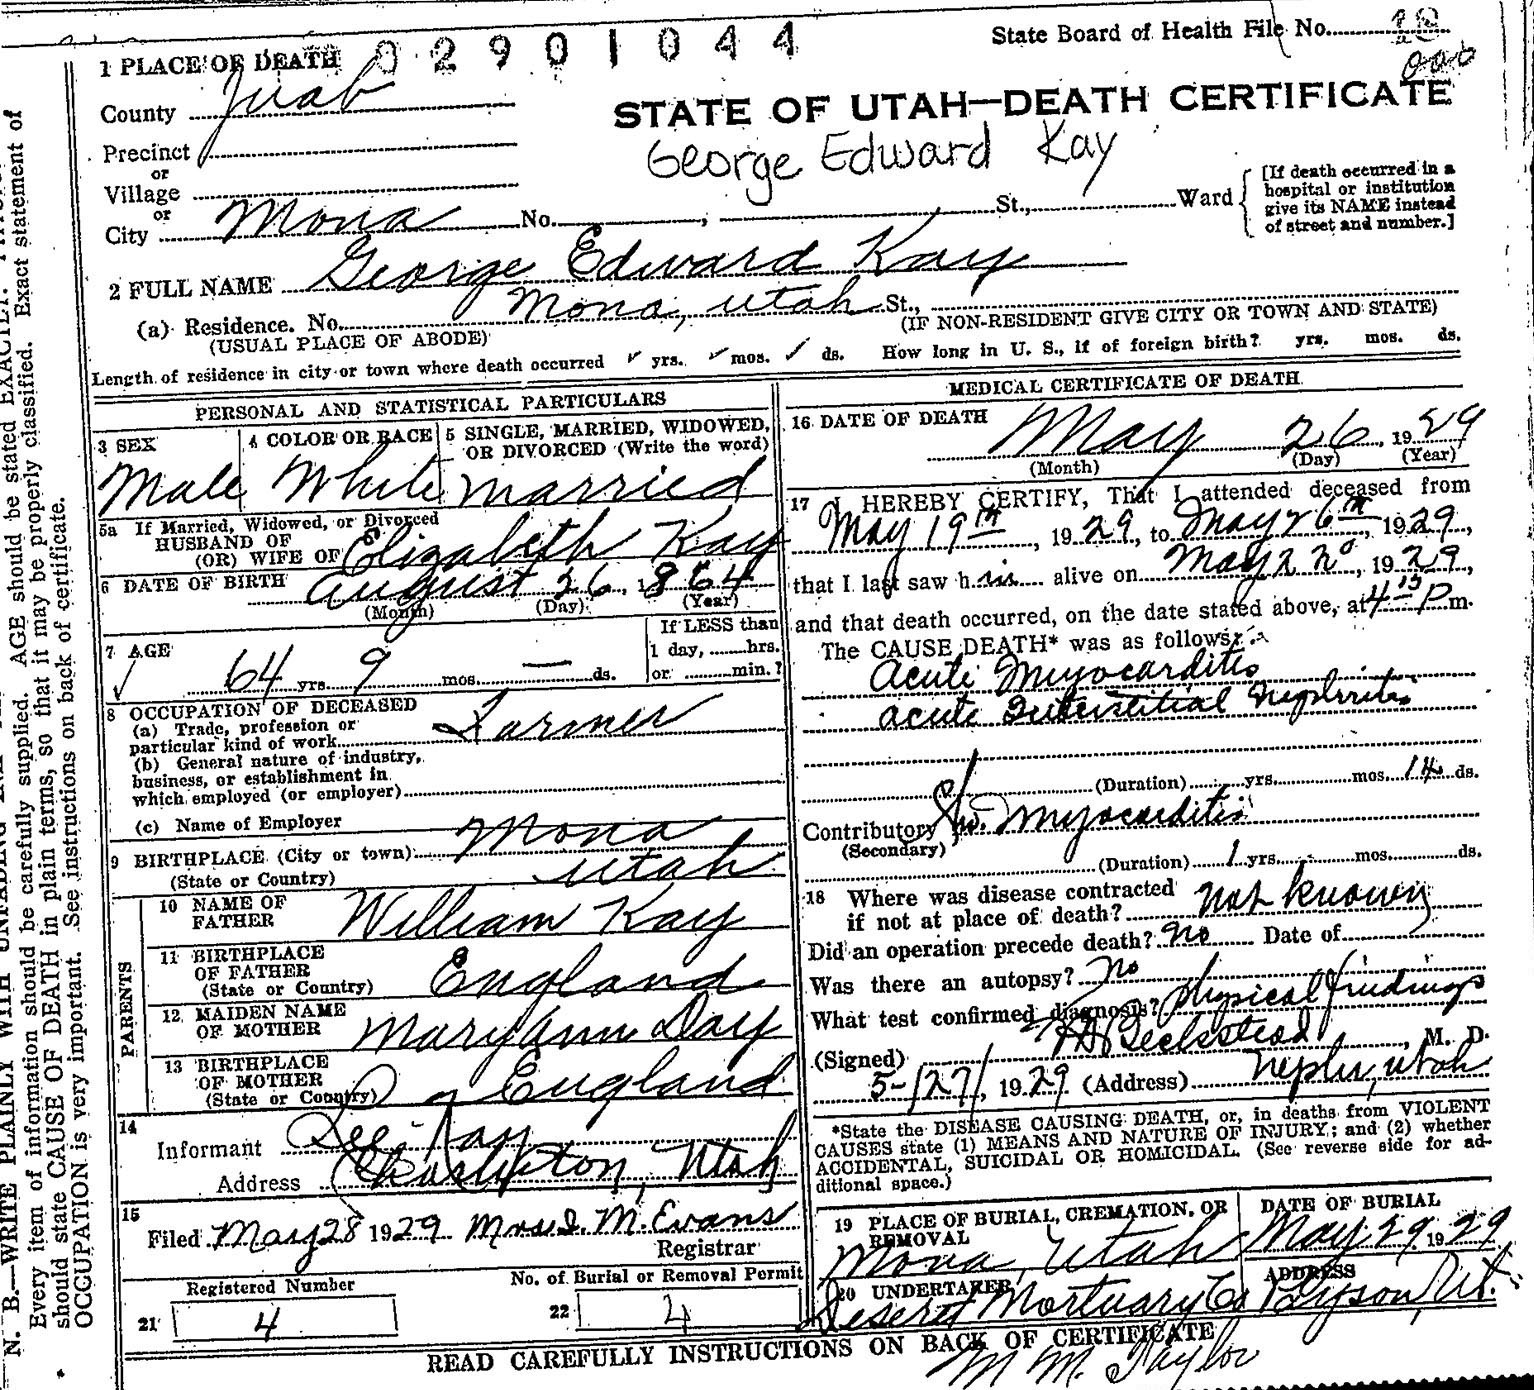 02901044
State Board of Health File No. 18
1 PLACE OF DEATH
County Juab
STATE OF UTAH—DEATH CERTIFICATE
Precinct
George Edward Kay
or
Village
or
City Mona No. , St., Ward
[If death occurred in a
hospital or institution
give its NAME instead
of street and number.]
2 FULL NAME George Edward Kay
(a) Residence. No. Mona, Utah St.,
(USUAL PLACE OF ABODE)
(IF NON-RESIDENT GIVE CITY OR TOWN AND STATE)
Length of residence in city or town where death occurred ✓ yrs. ✓ mos. ✓ ds. How long in U. S., if of foreign birth? yrs. mos. ds.
PERSONAL AND STATISTICAL PARTICULARS
3 SEX
Male
4 COLOR OR RACE
White
5 SINGLE, MARRIED, WIDOWED,
OR DIVORCED (Write the word)
Married
5a If Married, Widowed, or Divorced
HUSBAND OF
(OR) WIFE OF Elizabeth Kay
6 DATE OF BIRTH August 26, 1864
(Month) (Day) (Year)
7 AGE
✓ 64 yrs 9 mos. — ds.
If LESS than
1 day, hrs.
or min.?
8 OCCUPATION OF DECEASED
(a) Trade, profession or
particular kind of work Farmer
(b) General nature of industry,
business, or establishment in
which employed (or employer)
(c) Name of Employer
9 BIRTHPLACE (City or town) Mona
(State or Country) Utah
PARENTS
10 NAME OF
FATHER William Kay
11 BIRTHPLACE
OF FATHER
(State or Country) England
12 MAIDEN NAME
OF MOTHER Mary Ann Day
13 BIRTHPLACE
OF MOTHER
(State or Country) England
14
Informant Kay
Address Utah
15
Filed May 28 1929 Mrs. I. M. Evans
Registrar
Registered Number
21 4
No. of Burial or Removal Permit
22 4
MEDICAL CERTIFICATE OF DEATH
16 DATE OF DEATH
May 26, 1929
(Month) (Day) (Year)
17 I HEREBY CERTIFY, That I attended deceased from
May 19th, 1929, to May 26th, 1929,
that I last saw him alive on May 22nd, 1929,
and that death occurred, on the date stated above, at 4 15 P m.
The CAUSE DEATH* was as follows:
Acute Myocarditis
Acute Interstitial Nephritis
(Duration) yrs. mos. 14 ds.
Contributory Chr. Myocarditis
(Secondary)
(Duration) 1 yrs. mos. ds.
18 Where was disease contracted
if not at place of death? Not known
Did an operation precede death? No Date of
Was there an autopsy? No
What test confirmed diagnosis? Physical findings
(Signed) Beckstead, M. D.
5-/27/, 1929 (Address) Nephi, Utah
*State the DISEASE CAUSING DEATH, or, in deaths from VIOLENT
CAUSES state (1) MEANS AND NATURE OF INJURY; and (2) whether
ACCIDENTAL, SUICIDAL OR HOMICIDAL. (See reverse side for ad-
ditional space.)
19 PLACE OF BURIAL, CREMATION, OR
REMOVAL
Mona, Utah
DATE OF BURIAL
May 29, 1929
20 UNDERTAKER
Deseret Mortuary Co
ADDRESS
Payson, Ut.
READ CAREFULLY INSTRUCTIONS ON BACK OF CERTIFICATE
M M. Taylor
N. B.—WRITE PLAINLY WITH UNFADING
Every item of information should be carefully supplied. AGE should be stated EXACTLY.
should state CAUSE OF DEATH in plain terms, so that it may be properly classified. Exact statement of
OCCUPATION is very important. See instructions on back of certificate.